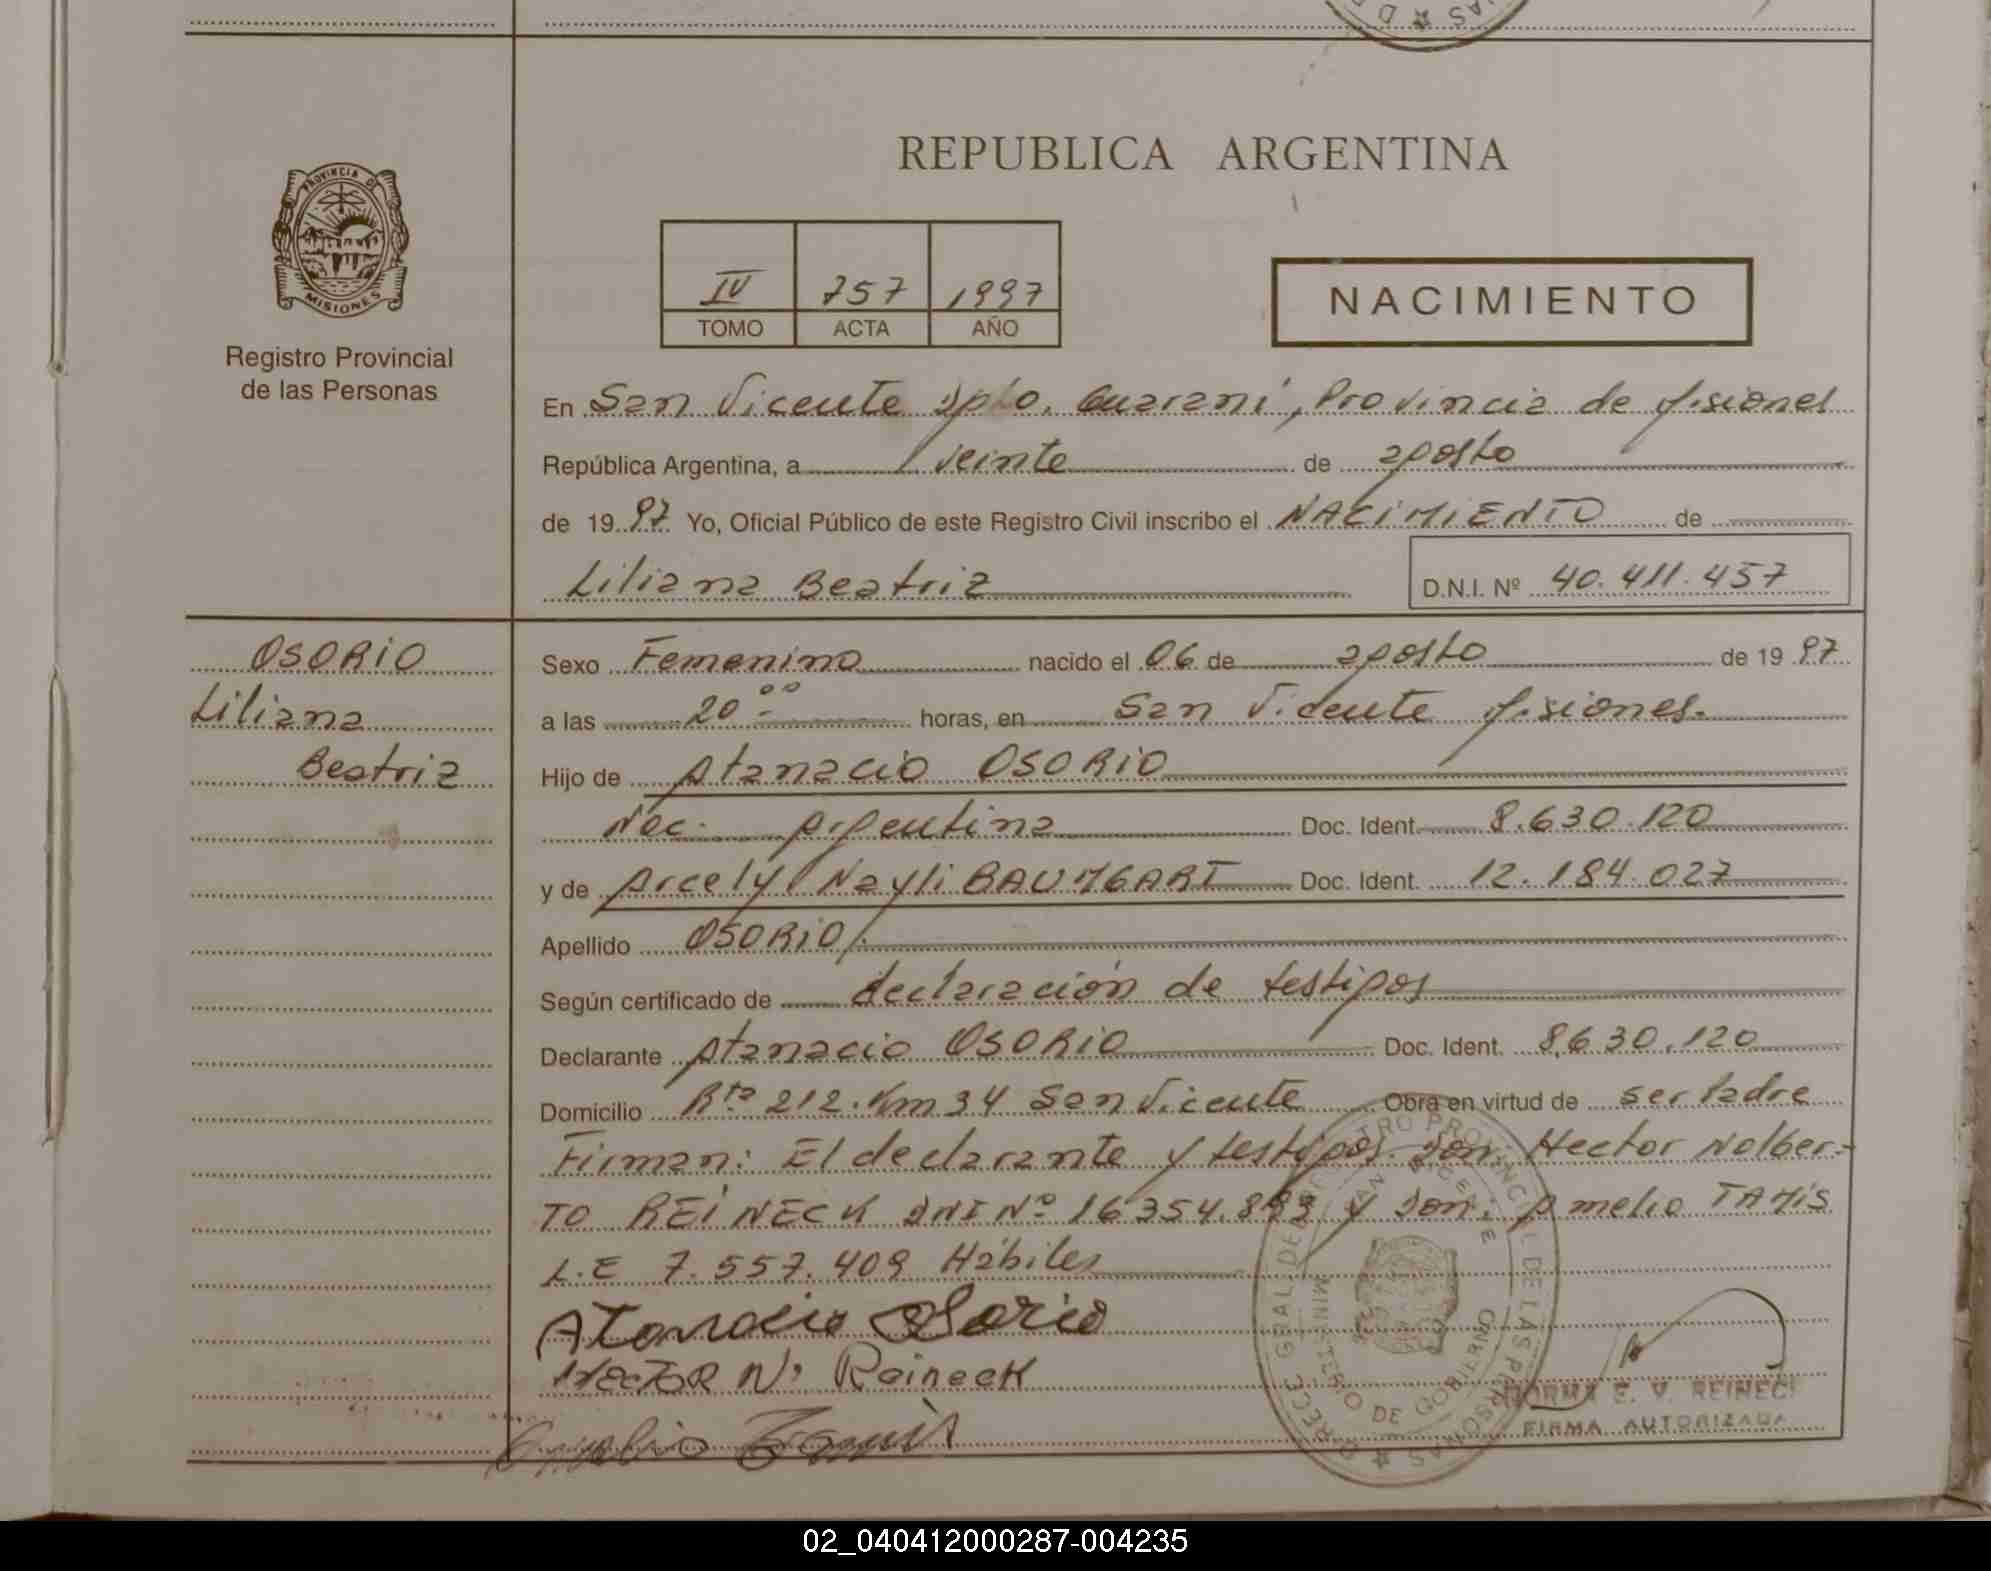 REPUBLICA ARGENTINA
PROVINCIA DE
MISIONES
Registro Provincial
de las Personas
IV 757 1997
TOMO ACTA AÑO
NACIMIENTO
En San Vicente Dpto. Guaraní, Provincia de Misiones
República Argentina, a veinte de agosto
de 1997 Yo, Oficial Público de este Registro Civil inscribo el NACIMIENTO de
Liliana Beatriz D.N.I. Nº 40.411.457
OSORIO
Liliana
Beatriz
Sexo Femenino nacido el 06 de agosto de 1997
a las 20:00 horas, en San Vicente Misiones.
Hijo de Atanacio OSORIO
Nac. Argentina Doc. Ident. 8.630.120
y de Arcely Nayli BAUMGART Doc. Ident. 12.184.027
Apellido OSORIO
Según certificado de declaración de testigos
Declarante Atanacio OSORIO Doc. Ident. 8.630.120
Domicilio Rta 212. Km 34 San Vicente Obra en virtud de ser Padre
Firman: El declarante y testigos Don. Hector Nolber-
TO REINECK DNI Nº 16354. y Don. Amelio TAMIS
L.E 7.557.409 Hábiles
Atanacio Osorio
HECTOR N. Reineck
Tamis
NORMA E. V. REINECK
FIRMA AUTORIZADA
DIREC. GRAL. DEL REGISTRO PROVINCIAL DE LAS PERSONAS
SAN VICENTE
MINISTERIO DE GOBIERNO
02_040412000287-004235